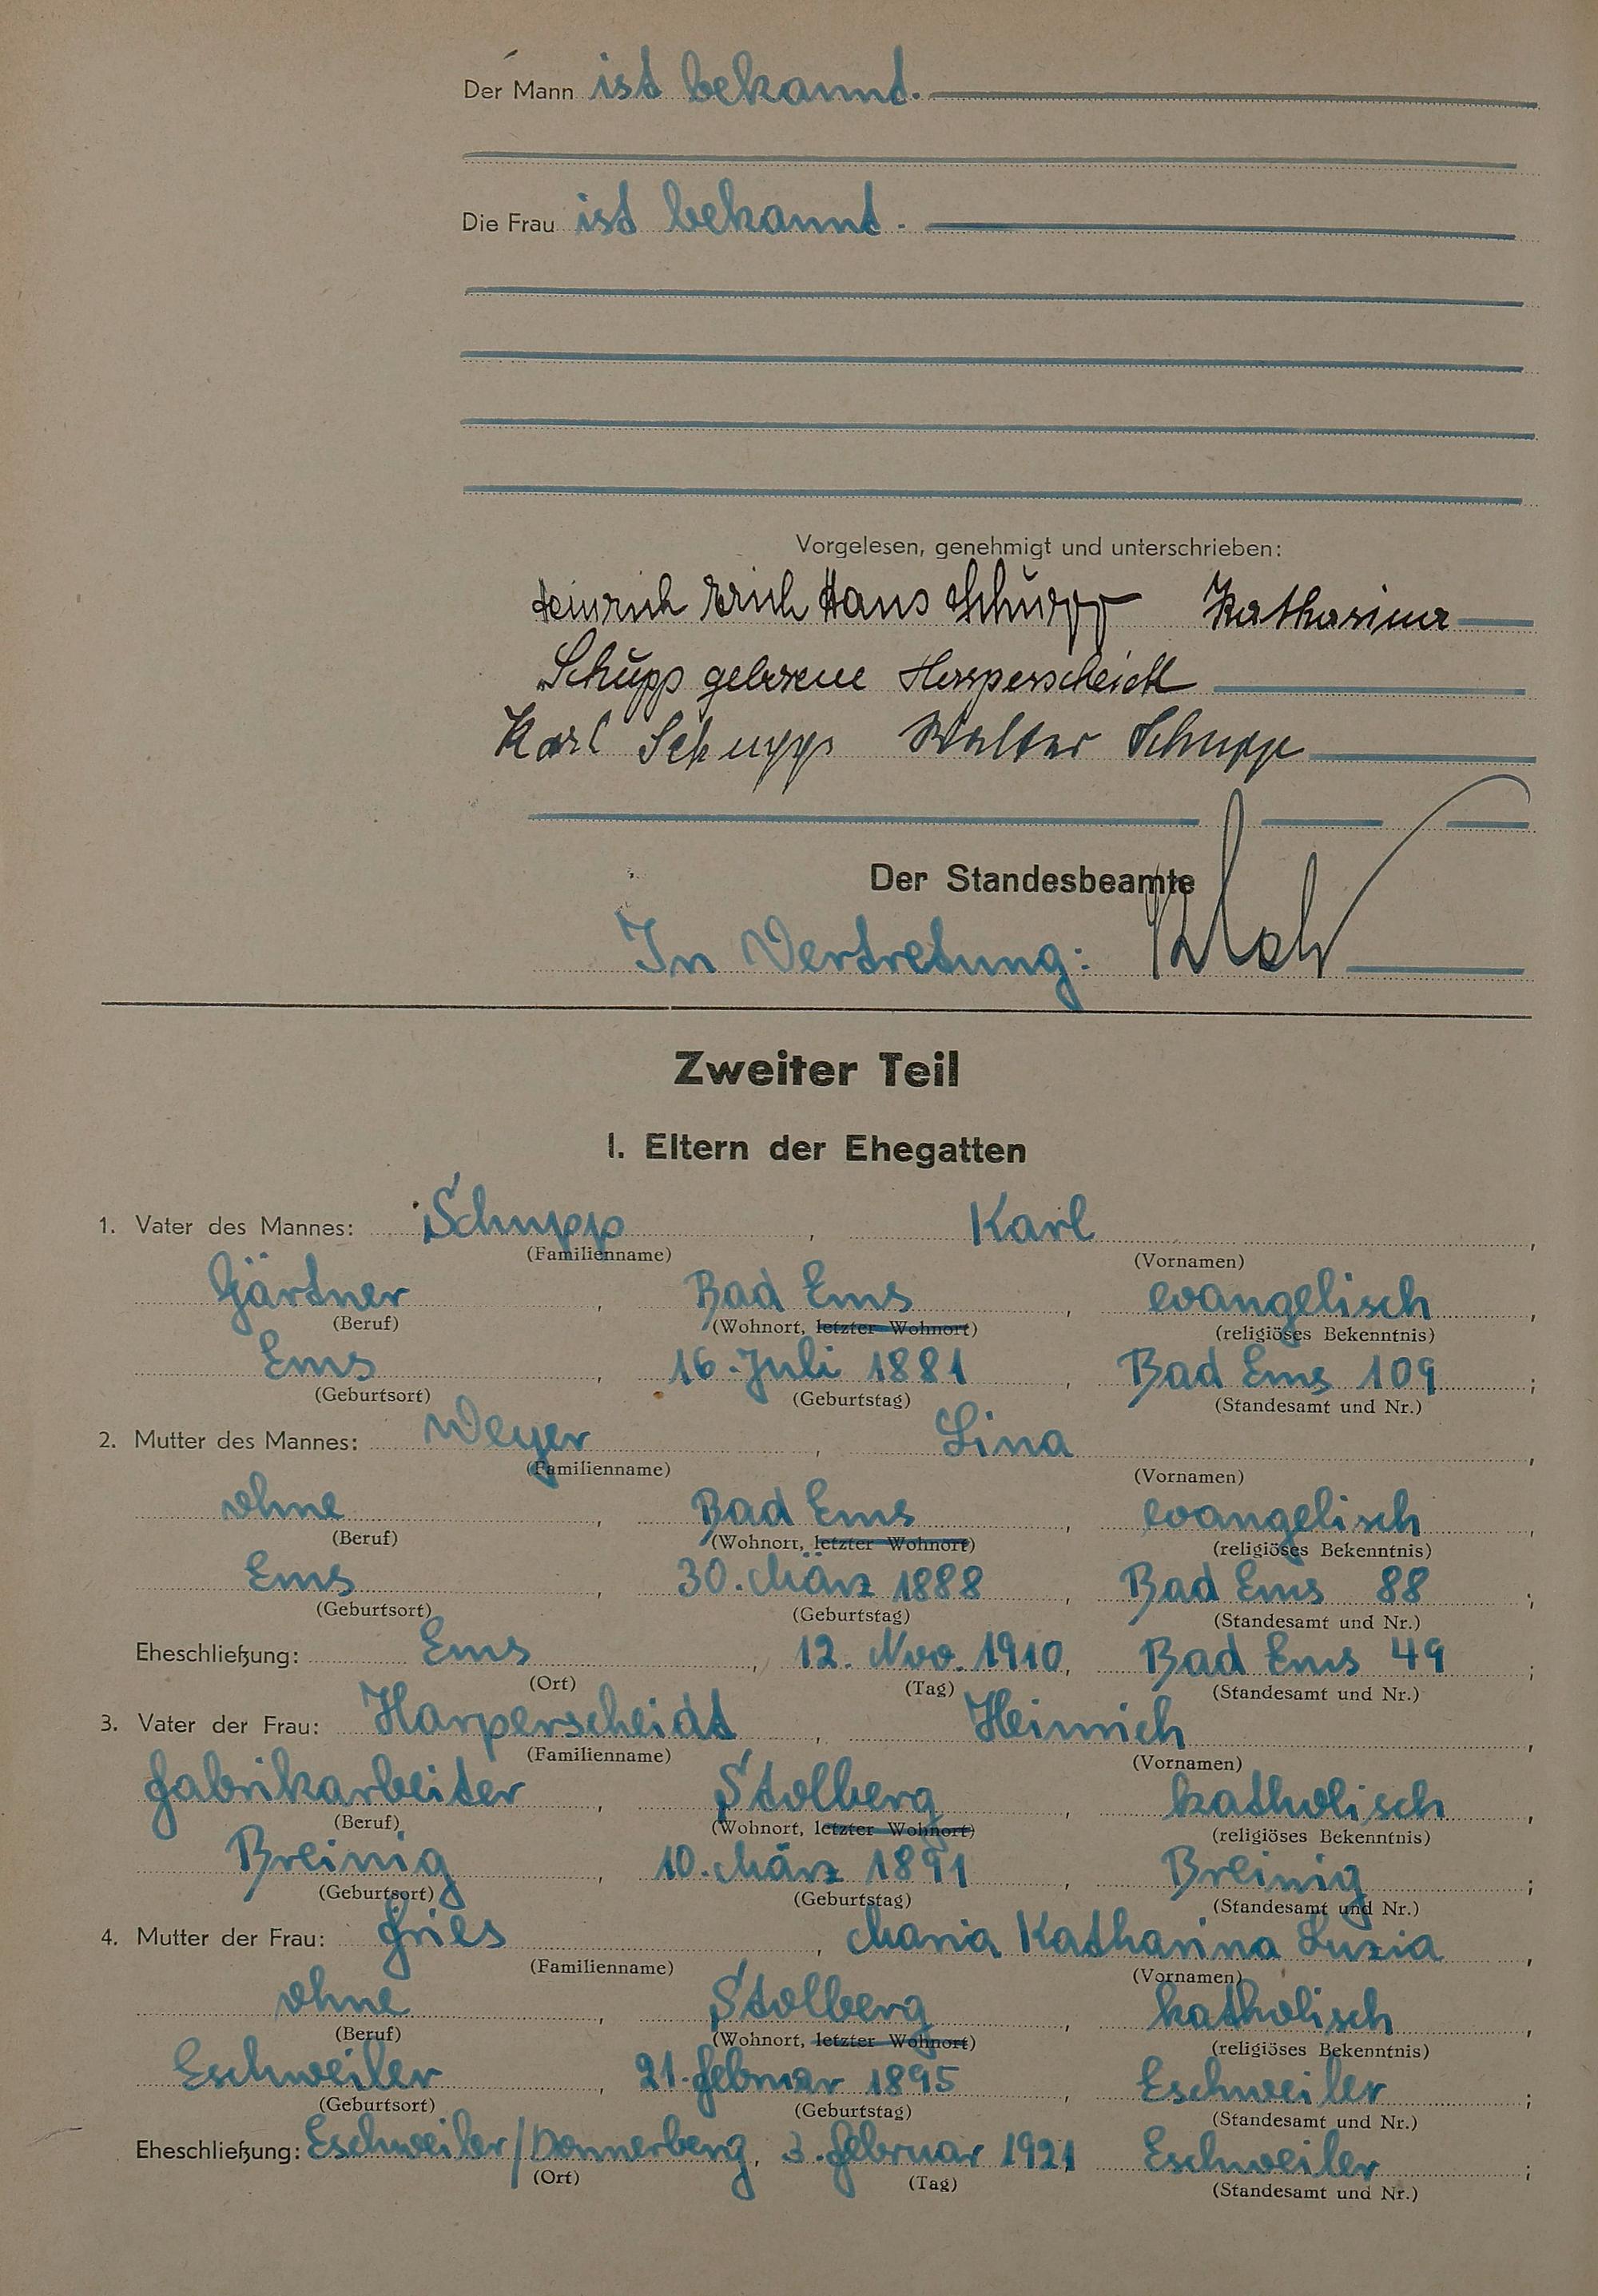 Der Mann ist bekannt.
Die Frau ist bekannt.
Vorgelesen, genehmigt und unterschrieben:
Heinrich Erich Hans Schupp Katharina
Schupp geborene Harperscheidt
Karl Schupp Walter Schupp
Der Standesbeamte
In Vertretung:
Zweiter Teil
I. Eltern der Ehegatten
1. Vater des Mannes: Schupp, Karl,
(Familienname) (Vornamen)
Gärtner, Bad Ems, evangelisch,
(Beruf) (Wohnort, letzter Wohnort) (religiöses Bekenntnis)
Ems, 16. Juli 1881, Bad Ems 109;
(Geburtsort) (Geburtstag) (Standesamt und Nr.)
2. Mutter des Mannes: Weyer, Lina,
(Familienname) (Vornamen)
ohne, Bad Ems, evangelisch,
(Beruf) (Wohnort, letzter Wohnort) (religiöses Bekenntnis)
Ems, 30. März 1888, Bad Ems 88;
(Geburtsort) (Geburtstag) (Standesamt und Nr.)
Eheschließung: Ems, 12. Nov. 1910, Bad Ems 49;
(Ort) (Tag) (Standesamt und Nr.)
3. Vater der Frau: Harperscheidt, Heinrich,
(Familienname) (Vornamen)
Fabrikarbeiter, Stolberg, katholisch,
(Beruf) (Wohnort, letzter Wohnort) (religiöses Bekenntnis)
Breinig, 10. März 1891, Breinig;
(Geburtsort) (Geburtstag) (Standesamt und Nr.)
4. Mutter der Frau: Gries, Maria Katharina Luzia,
(Familienname) (Vornamen)
ohne, Stolberg, katholisch,
(Beruf) (Wohnort, letzter Wohnort) (religiöses Bekenntnis)
Eschweiler, 21. Februar 1895, Eschweiler;
(Geburtsort) (Geburtstag) (Standesamt und Nr.)
Eheschließung: Eschweiler/Donnerberg, 3. Februar 1921 Eschweiler;
(Ort) (Tag) (Standesamt und Nr.)